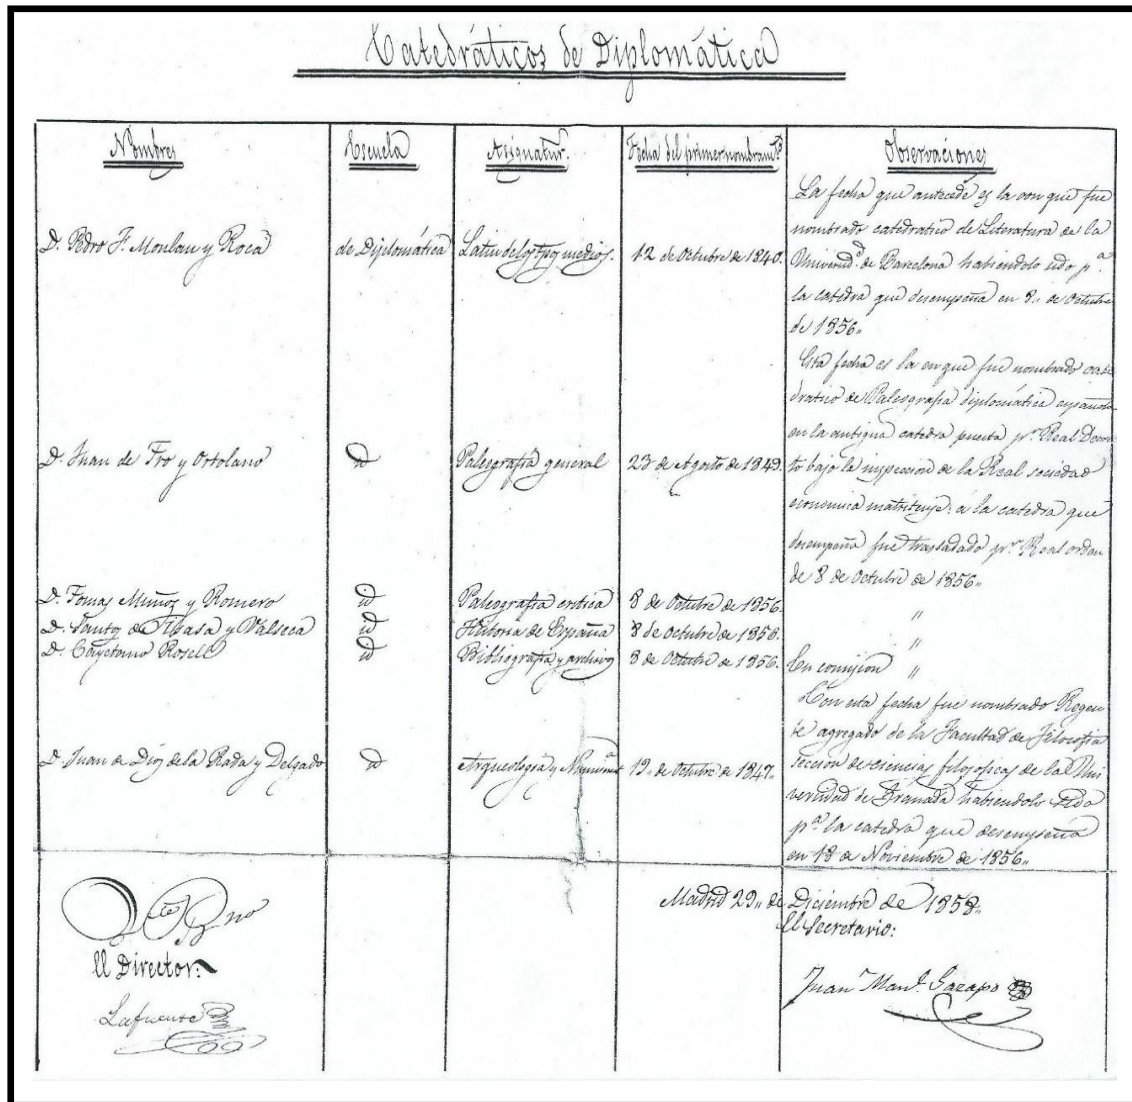 Catedráticos de Diplomática
Nombres
Escuela
Asignatur.
Fecha del primer nombramto
Observaciones
D. Pedro F. Monlau y Roca
de Diplomática
Latin de los tpos medios.
12 de Octubre de 1840.
La fecha que antecede es la con que fue
nombrado catedratico de Literatura de la
Universidd de Barcelona habiendolo sido pa
la catedra que desempeña en 8,, de Octubre
de 1856,,
D. Juan de Tro y Ortolano
id
Paleografia general
23 de Agosto de 1849.
Esta fecha es la en que fue nombrado cate
dratico de Paleografia diplomática española
en la antigua catedra puesta pr Real Decre
to bajo la inspeccion de la Real sociedad
economica matritense: a la catedra que
desempeña fue trasladado pr Real orden
de 8 de Octubre de 1856,,
D. Tomas Muñoz y Romero
id
Paleografia critica
8 de Octubre de 1856.
"
D. Santos de Isasa y Valseca
id
Historia de España
8 de Octubre de 1856.
"
D. Cayetano Rosell
id
Bibliografia y archivos
8 de Octubre de 1856.
En comision "
D. Juan de Dios de la Rada y Delgado
id
Arqueologia y Numismat
19,, de Octubre de 1847,,
Con esta fecha fue nombrado Regen
te agregado de la Facultad de Filosofia
seccion de ciencias filosoficas de la Uni
versidad de Granada habiendolo sido
pa la catedra que desempeña
en 18 de Noviembre de 1856,,
Madrid 29,, de Diciembre de 1858,,
El Secretario:
Juan Manl. Gazapo
Vto Bno
El Director:
Lafuente